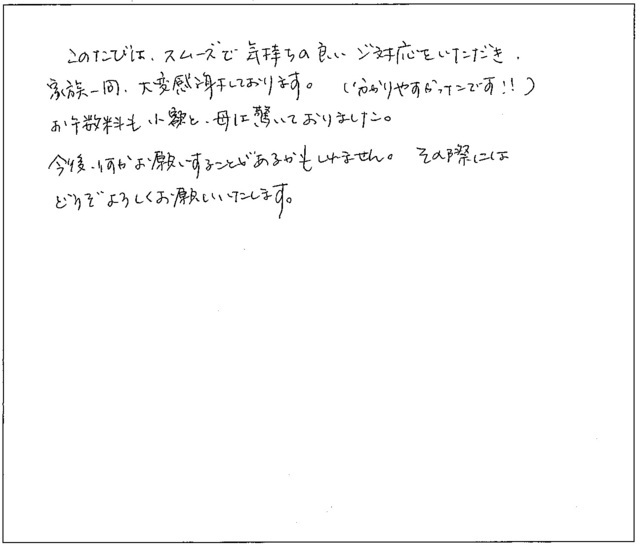 このたびは、スムーズで気持ちの良いご対応をいただき、
家族一同、大変感謝しております。（分かりやすかったです!!）
お手数料も小額と、母は驚いておりました。
今後、何かお願いすることがあるかもしれません。その際には
どうぞよろしくお願いいたします。